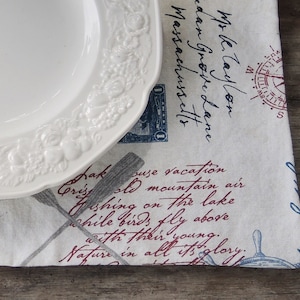 Mr & Taylor
Grove Lane
Massachusetts
1
house vacation
old mountain air
Fishing on the lake
while birds fly above
with their young.
Nature in all its glory.